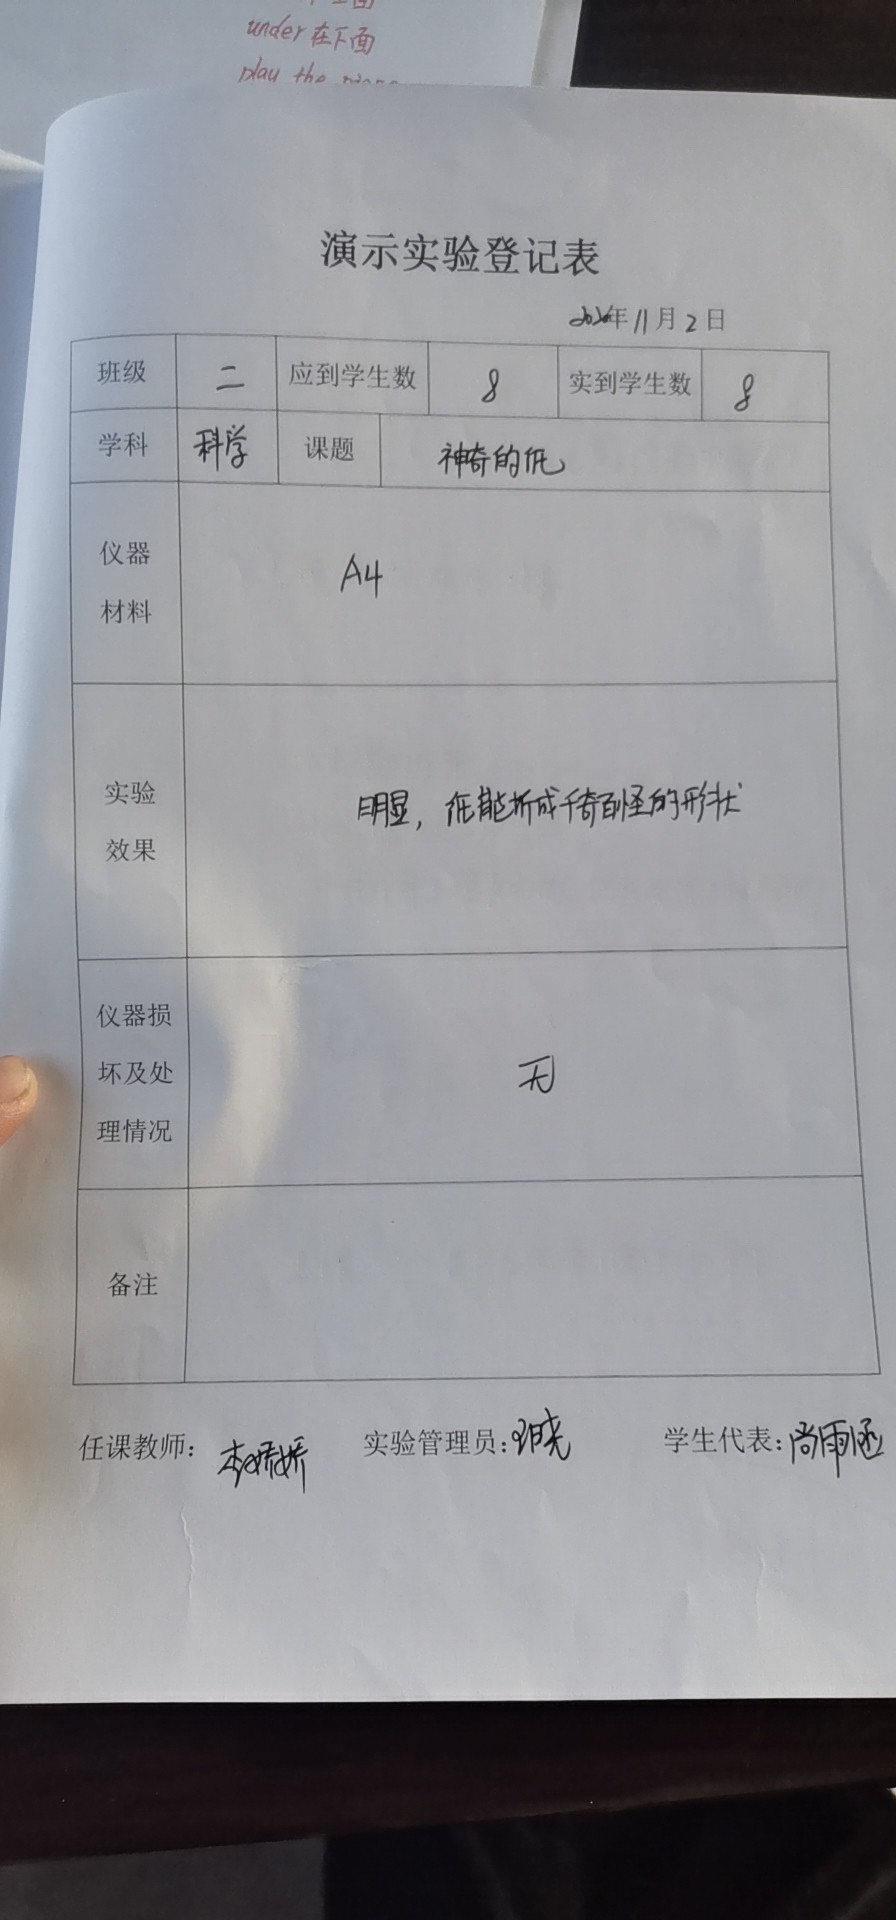 under 在下面
play the piano
演示实验登记表
年11月2日
班级 二 应到学生数 8 实到学生数 8
学科 科学 课题 神奇的纸
仪器
材料
A4
实验
效果
明显，纸能折成千奇百怪的形状
仪器损
坏及处
理情况
无
备注
任课教师： 李娇娇 实验管理员： 学生代表：尚雨涵